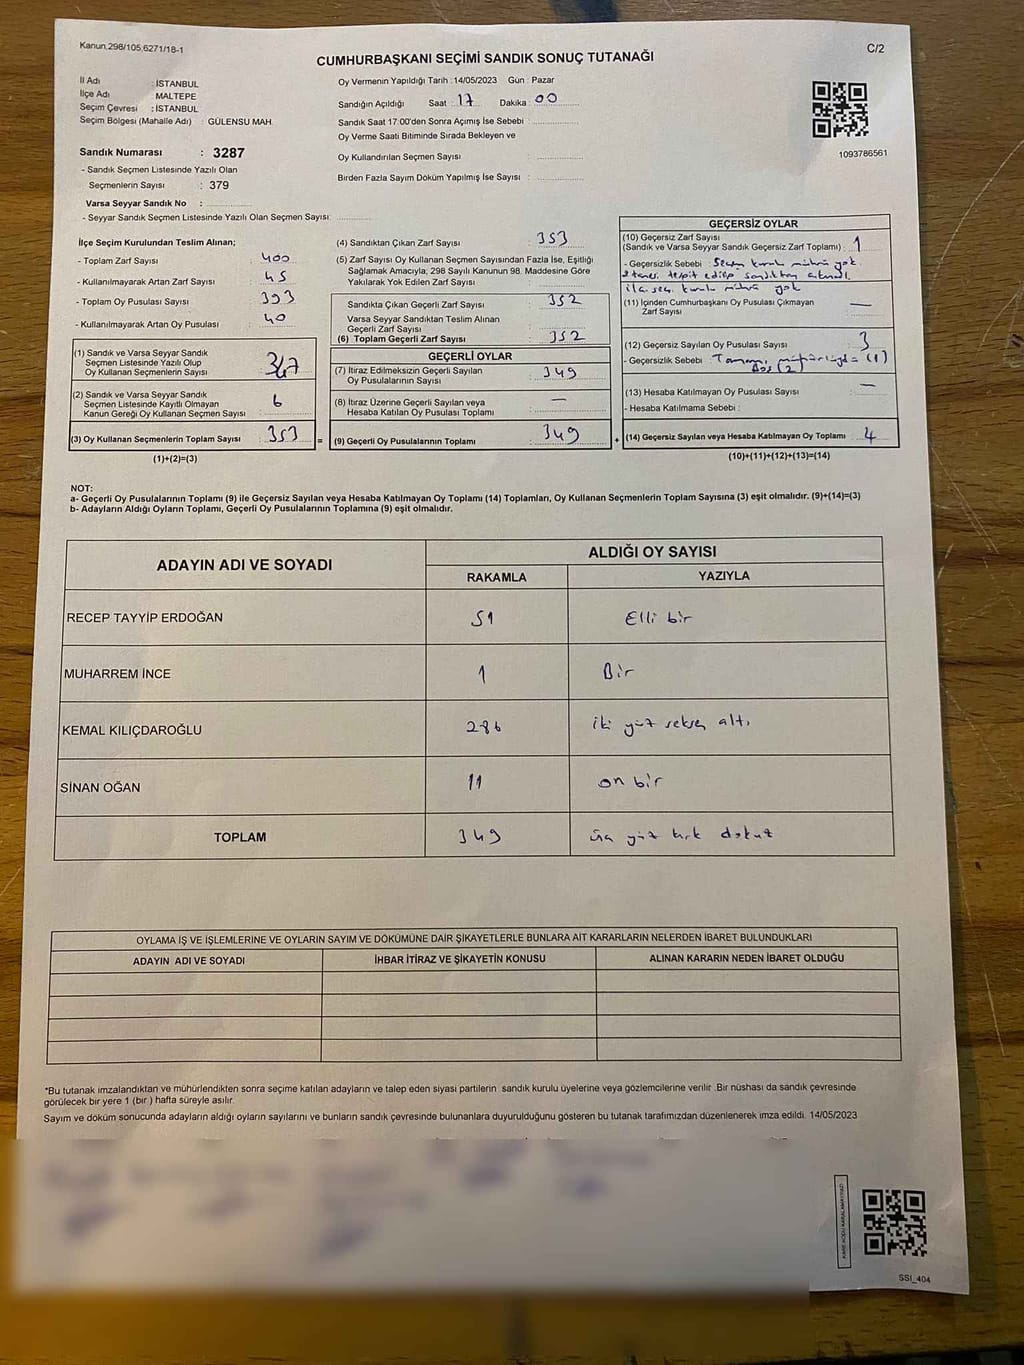 Kanun.298/105,6271/18-1
C/2
CUMHURBAŞKANI SEÇİMİ SANDIK SONUÇ TUTANAĞI
İl Adı : İSTANBUL
İlçe Adı MALTEPE
Seçim Çevresi : İSTANBUL
Seçim Bölgesi (Mahalle Adı) : GÜLENSU MAH.
Sandık Numarası : 3287
- Sandık Seçmen Listesinde Yazılı Olan
Seçmenlerin Sayısı : 379
Varsa Seyyar Sandık No :
- Seyyar Sandık Seçmen Listesinde Yazılı Olan Seçmen Sayısı:
Oy Vermenin Yapıldığı Tarih : 14/05/2023 Gün : Pazar
Sandığın Açıldığı Saat : 17 Dakika : 00
Sandık Saat 17:00'den Sonra Açımış İse Sebebi :
Oy Verme Saati Bitiminde Sırada Bekleyen ve
Oy Kullandırılan Seçmen Sayısı :
Birden Fazla Sayım Döküm Yapılmış İse Sayısı :
1093786561
İlçe Seçim Kurulundan Teslim Alınan;
- Toplam Zarf Sayısı : 400
- Kullanılmayarak Artan Zarf Sayısı : 45
- Toplam Oy Pusulası Sayısı : 393
- Kullanılmayarak Artan Oy Pusulası : 40
(1) Sandık ve Varsa Seyyar Sandık
Seçmen Listesinde Yazılı Olup
Oy Kullanan Seçmenlerin Sayısı : 347
(2) Sandık ve Varsa Seyyar Sandık
Seçmen Listesinde Kayıtlı Olmayan
Kanun Gereği Oy Kullanan Seçmen Sayısı : 6
(3) Oy Kullanan Seçmenlerin Toplam Sayısı : 353 =
(1)+(2)=(3)
(4) Sandıktan Çıkan Zarf Sayısı : 353
(5) Zarf Sayısı Oy Kullanan Seçmen Sayısından Fazla İse, Eşitliği
Sağlamak Amacıyla; 298 Sayılı Kanunun 98. Maddesine Göre
Yakılarak Yok Edilen Zarf Sayısı :
Sandıkta Çıkan Geçerli Zarf Sayısı : 352
Varsa Seyyar Sandıktan Teslim Alınan
Geçerli Zarf Sayısı :
(6) Toplam Geçerli Zarf Sayısı : 352
GEÇERLİ OYLAR
(7) İtiraz Edilmeksizin Geçerli Sayılan
Oy Pusulalarının Sayısı : 349
(8) İtiraz Üzerine Geçerli Sayılan veya
Hesaba Katılan Oy Pusulası Toplamı : —
(9) Geçerli Oy Pusulalarının Toplamı : 349 +
GEÇERSİZ OYLAR
(10) Geçersiz Zarf Sayısı
(Sandık ve Varsa Seyyar Sandık Geçersiz Zarf Toplamı) : 1
- Geçersizlik Sebebi : Seçim kurulu mührü yok
tespit edilip sandıktan
ilçe seç. kurulu mührü yok
(11) İçinden Cumhurbaşkanı Oy Pusulası Çıkmayan
Zarf Sayısı : —
(12) Geçersiz Sayılan Oy Pusulası Sayısı : 3
- Geçersizlik Sebebi : Tamamı mühürlüydü (1)
Boş (2)
(13) Hesaba Katılmayan Oy Pusulası Sayısı : —
- Hesaba Katılmama Sebebi :
(14) Geçersiz Sayılan veya Hesaba Katılmayan Oy Toplamı : 4
(10)+(11)+(12)+(13)=(14)
NOT:
a- Geçerli Oy Pusulalarının Toplamı (9) ile Geçersiz Sayılan veya Hesaba Katılmayan Oy Toplamı (14) Toplamları, Oy Kullanan Seçmenlerin Toplam Sayısına (3) eşit olmalıdır. (9)+(14)=(3)
b- Adayların Aldığı Oyların Toplamı, Geçerli Oy Pusulalarının Toplamına (9) eşit olmalıdır.
ADAYIN ADI VE SOYADI
ALDIĞI OY SAYISI
RAKAMLA YAZIYLA
RECEP TAYYİP ERDOĞAN 51 Elli bir
MUHARREM İNCE 1 Bir
KEMAL KILIÇDAROĞLU 286 iki yüz seksen altı
SİNAN OĞAN 11 on bir
TOPLAM 349 üç yüz kırk dokuz
OYLAMA İŞ VE İŞLEMLERİNE VE OYLARIN SAYIM VE DÖKÜMÜNE DAİR ŞİKAYETLERLE BUNLARA AİT KARARLARIN NELERDEN İBARET BULUNDUKLARI
ADAYIN ADI VE SOYADI İHBAR İTİRAZ VE ŞİKAYETİN KONUSU ALINAN KARARIN NEDEN İBARET OLDUĞU
*Bu tutanak imzalandıktan ve mühürlendikten sonra seçime katılan adayların ve talep eden siyasi partilerin sandık kurulu üyelerine veya gözlemcilerine verilir. Bir nüshası da sandık çevresinde
görülecek bir yere 1 (bir ) hafta süreyle asılır.
Sayım ve döküm sonucunda adayların aldığı oyların sayılarını ve bunların sandık çevresinde bulunanlara duyurulduğunu gösteren bu tutanak tarafımızdan düzenlenerek imza edildi. 14/05/2023
KARE KODU KARALAMAYINIZ!
SSI_404